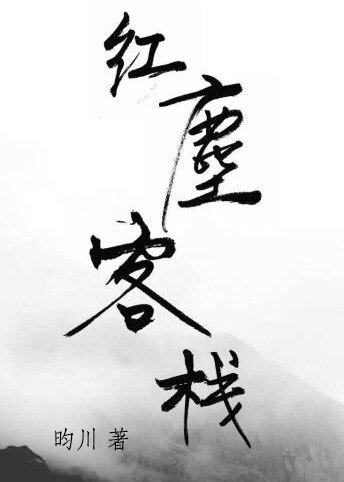 红尘客栈
昀川 著